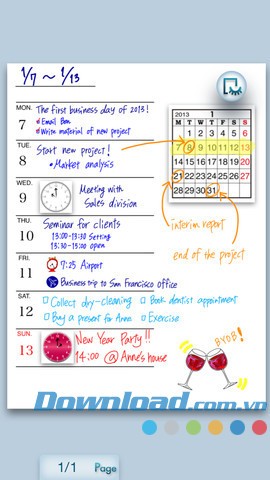 1/7 ~ 1/13
2013 1
M T W T F S S
1 2 3 4 5 6
7 8 9 10 11 12 13
14 15 16 17 18 19 20
21 22 23 24 25 26 27
28 29 30 31
MON. 7
The first business day of 2013!
Email Ben
Write material of new project
TUE. 8
Start new project!
•Market analysis
WED. 9
Meeting with
Sales division
interim report
end of the project
THU. 10
Seminar for clients
13:00-13:30 Setting
13:30-15:00 open
FRI. 11
7:25 Airport
Business trip to San Francisco office
SAT. 12
Collect dry-cleaning
Book dentist appointment
Buy a present for Anne
Exercise
SUN. 13
New Year Party!!
14:00 @ Anne's house
BYOB!
Download.com.vn
1/1 Page